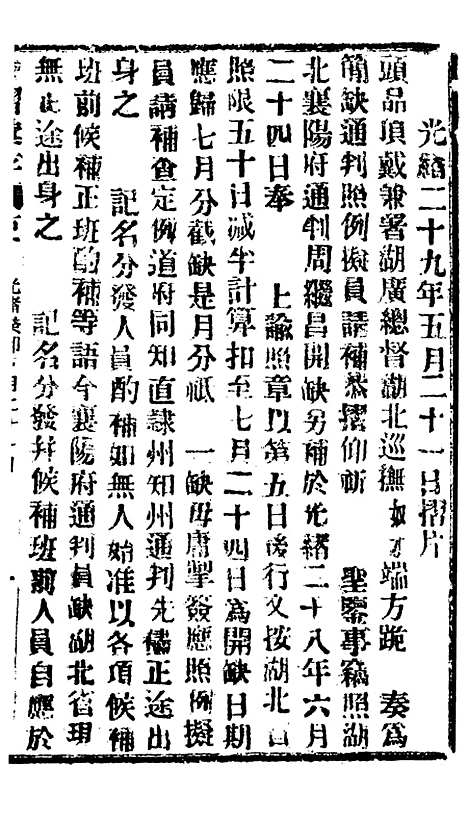 光緒二十九年五月二十一日摺片
頭品頂戴兼署湖廣總督湖北巡撫奴才端方跪 奏爲
簡缺通判照例擬員請補恭摺仰祈 聖鑒事竊照湖
北襄陽府通判周繼昌開缺另補於光緒二十八年六月
二十四日奉 上諭照章以第五日後行文按湖北省
照限五十日減半計算扣至七月二十四日爲開缺日期
應歸七月分截缺是月分祇 一缺毋庸掣簽應照例擬
員請補查定例道府同知直隸州知州通判先儘正途出
身之 記名分發人員酌補如無人始准以各項候補
班前候補正班酌補等語今襄陽府通判員缺湖北省現
無正途出身之 記名分發幷候補班前人員自應於